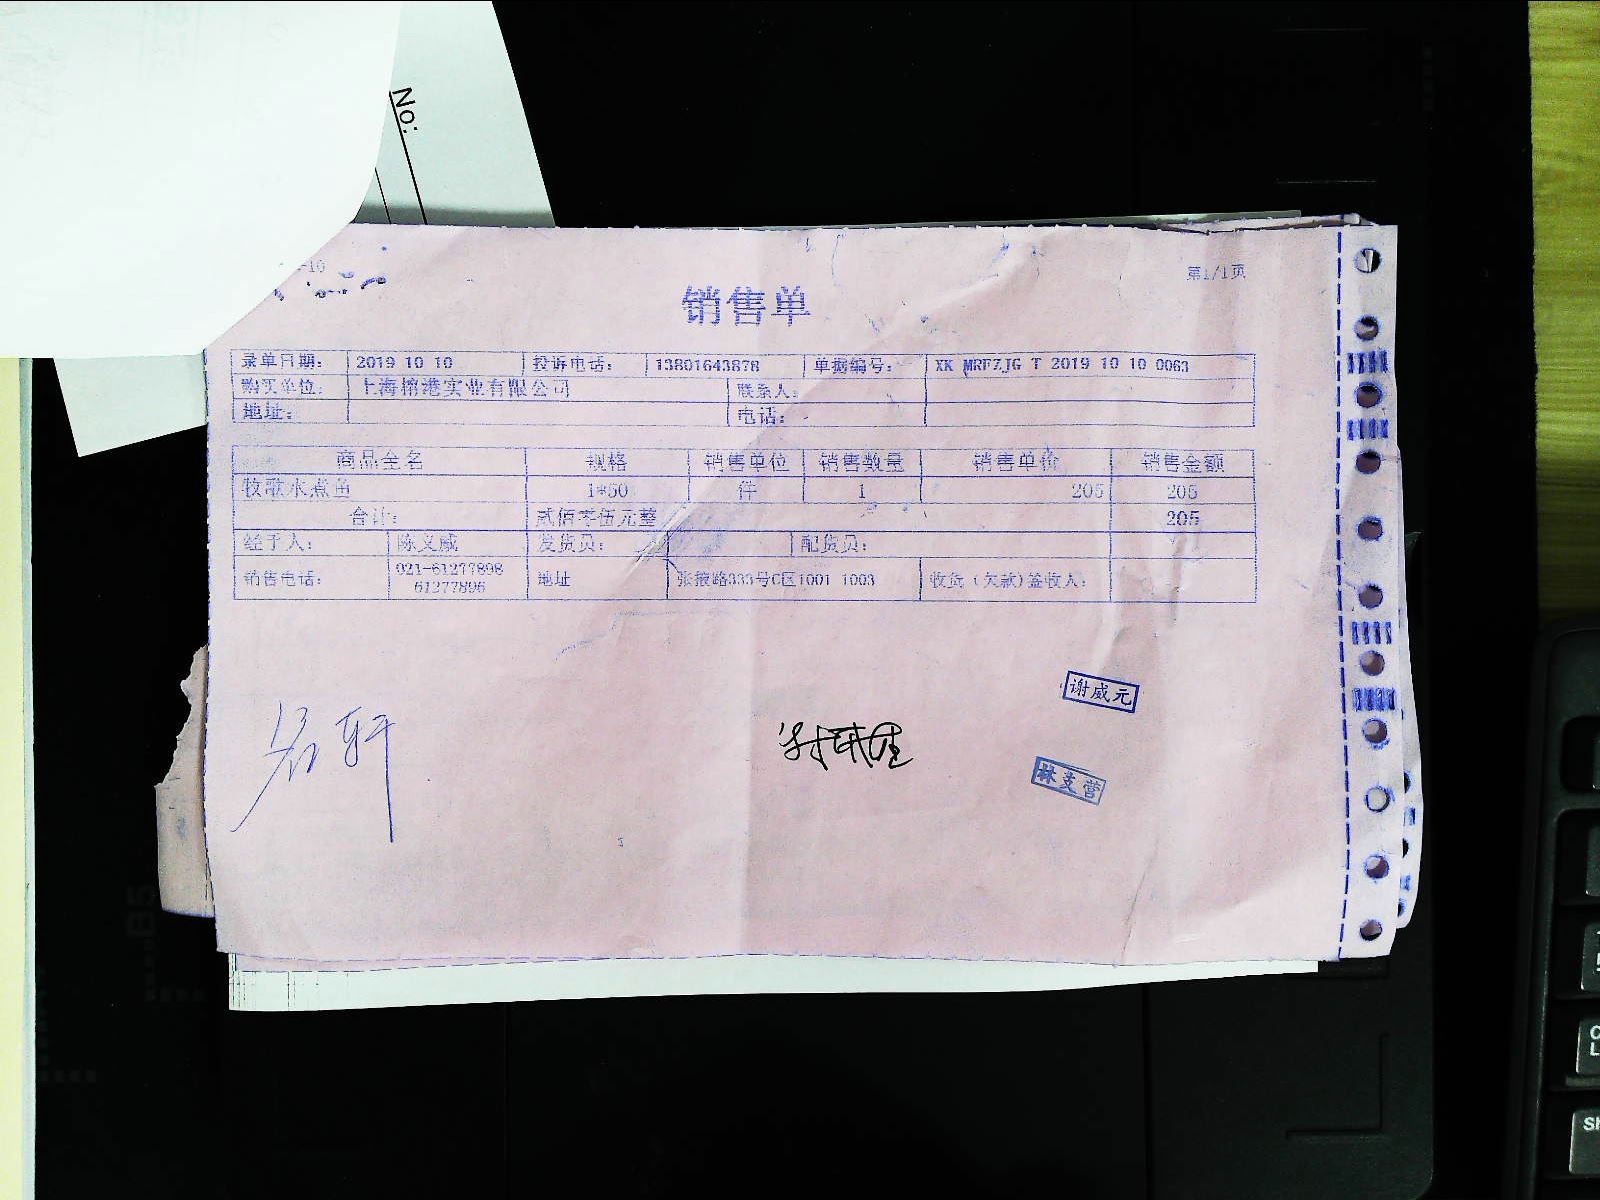 No:
-10
第1/1页
销售单
录单日期: 2019 10 10 投诉电话: 13801643878 单据编号: XK MRFZJG T 2019 10 10 0063
购买单位: 上海榕港实业有限公司 联系人:
地址: 电话:
商品全名 规格 销售单位 销售数量 销售单价 销售金额
牧歌水煮鱼 1*50 件 1 205 205
合计: 贰佰零伍元整 205
经手人: 陈义威 发货员: 配货员:
销售电话: 021-61277898 地址 张掖路333号C区1001 1003 收货(欠款)签收人:
61277896
谢威元
林支营